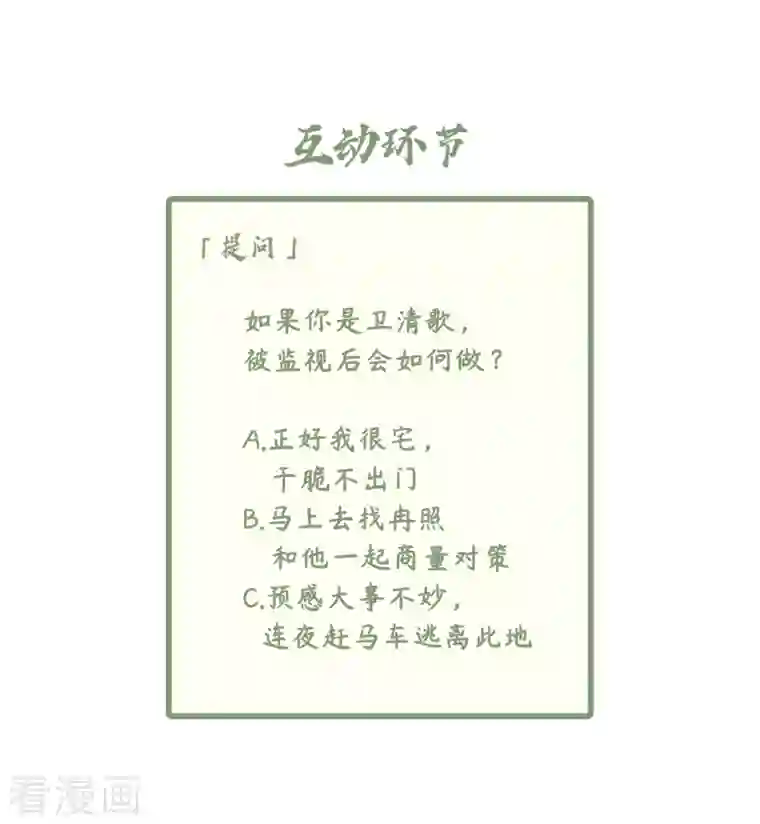 互动环节
「提问」
如果你是卫清歌，
被监视后会如何做？
A.正好我很宅，
干脆不出门
B.马上去找冉照
和他一起商量对策
C.预感大事不妙，
连夜赶马车逃离此地
看漫画